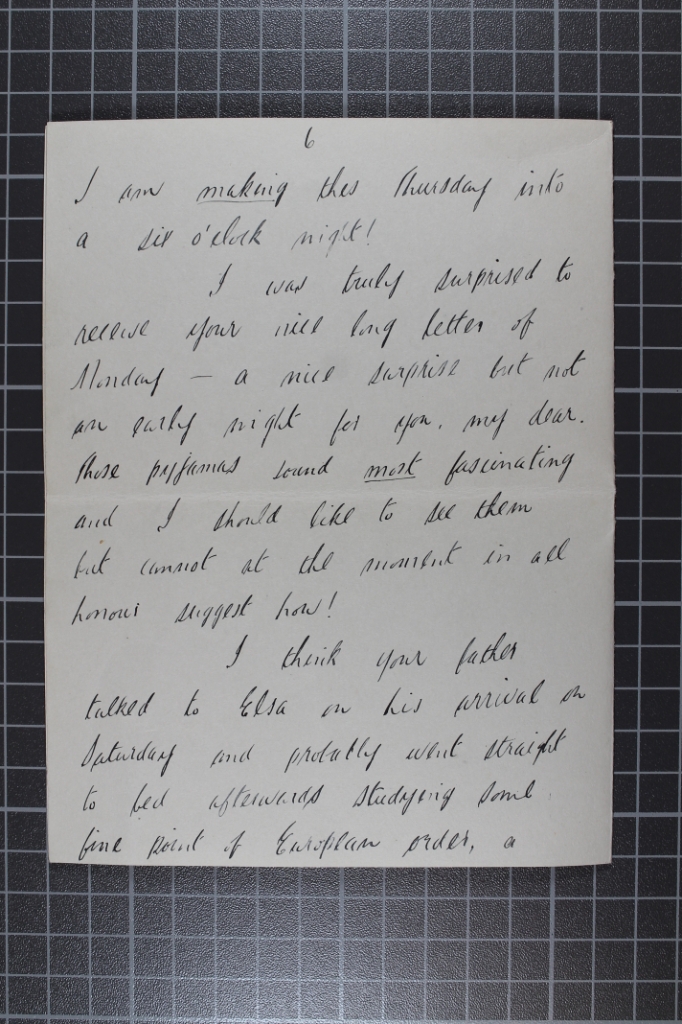 6
I am making this Thursday into
a six o'clock night!
I was truly surprised to
receive your nice long letter of
Monday — a nice surprise but not
an early night for you, my dear.
Those pyjamas sound most fascinating
and I should like to see them
but cannot at the moment in all
honour suggest how!
I think your father
talked to Elsa on his arrival on
Saturday and probably went straight
to bed afterwards studying some
fine point of European order, a